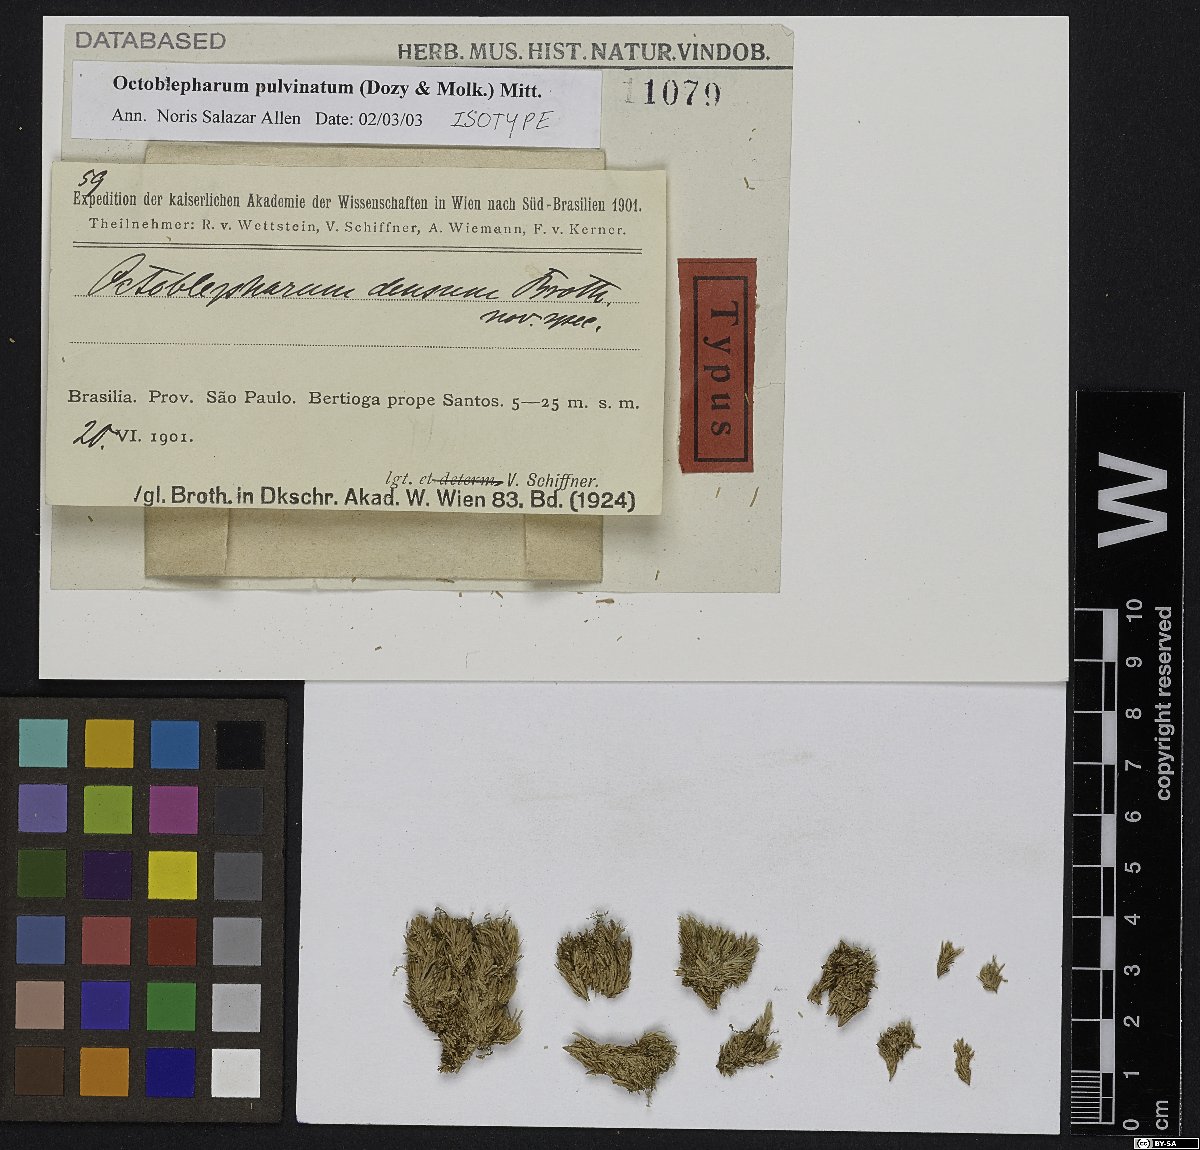 DATABASED
HERB. MUS. HIST. NATUR. VINDOB.
Octoblepharum pulvinatum (Dozy & Molk.) Mitt.
Ann. Noris Salazar Allen Date: 02/03/03 ISOTYPE
11079
59
Expedition der kaiserlichen Akademie der Wissenschaften in Wien nach Süd-Brasilien 1901.
Theilnehmer: R. v. Wettstein, V. Schiffner, A. Wiemann, F. v. Kerner.
Octoblepharum densum Broth.
nov. spec.
Brasilia. Prov. São Paulo. Bertioga prope Santos. 5—25 m. s. m.
20. VI. 1901.
lgt. et determ. V. Schiffner.
/gl. Broth. in Dkschr. Akad. W. Wien 83. Bd. (1924)
Typus
W
10
9
8
7
6
5
4
3
2
1
0
cm
copyright reserved
cc BY-SA